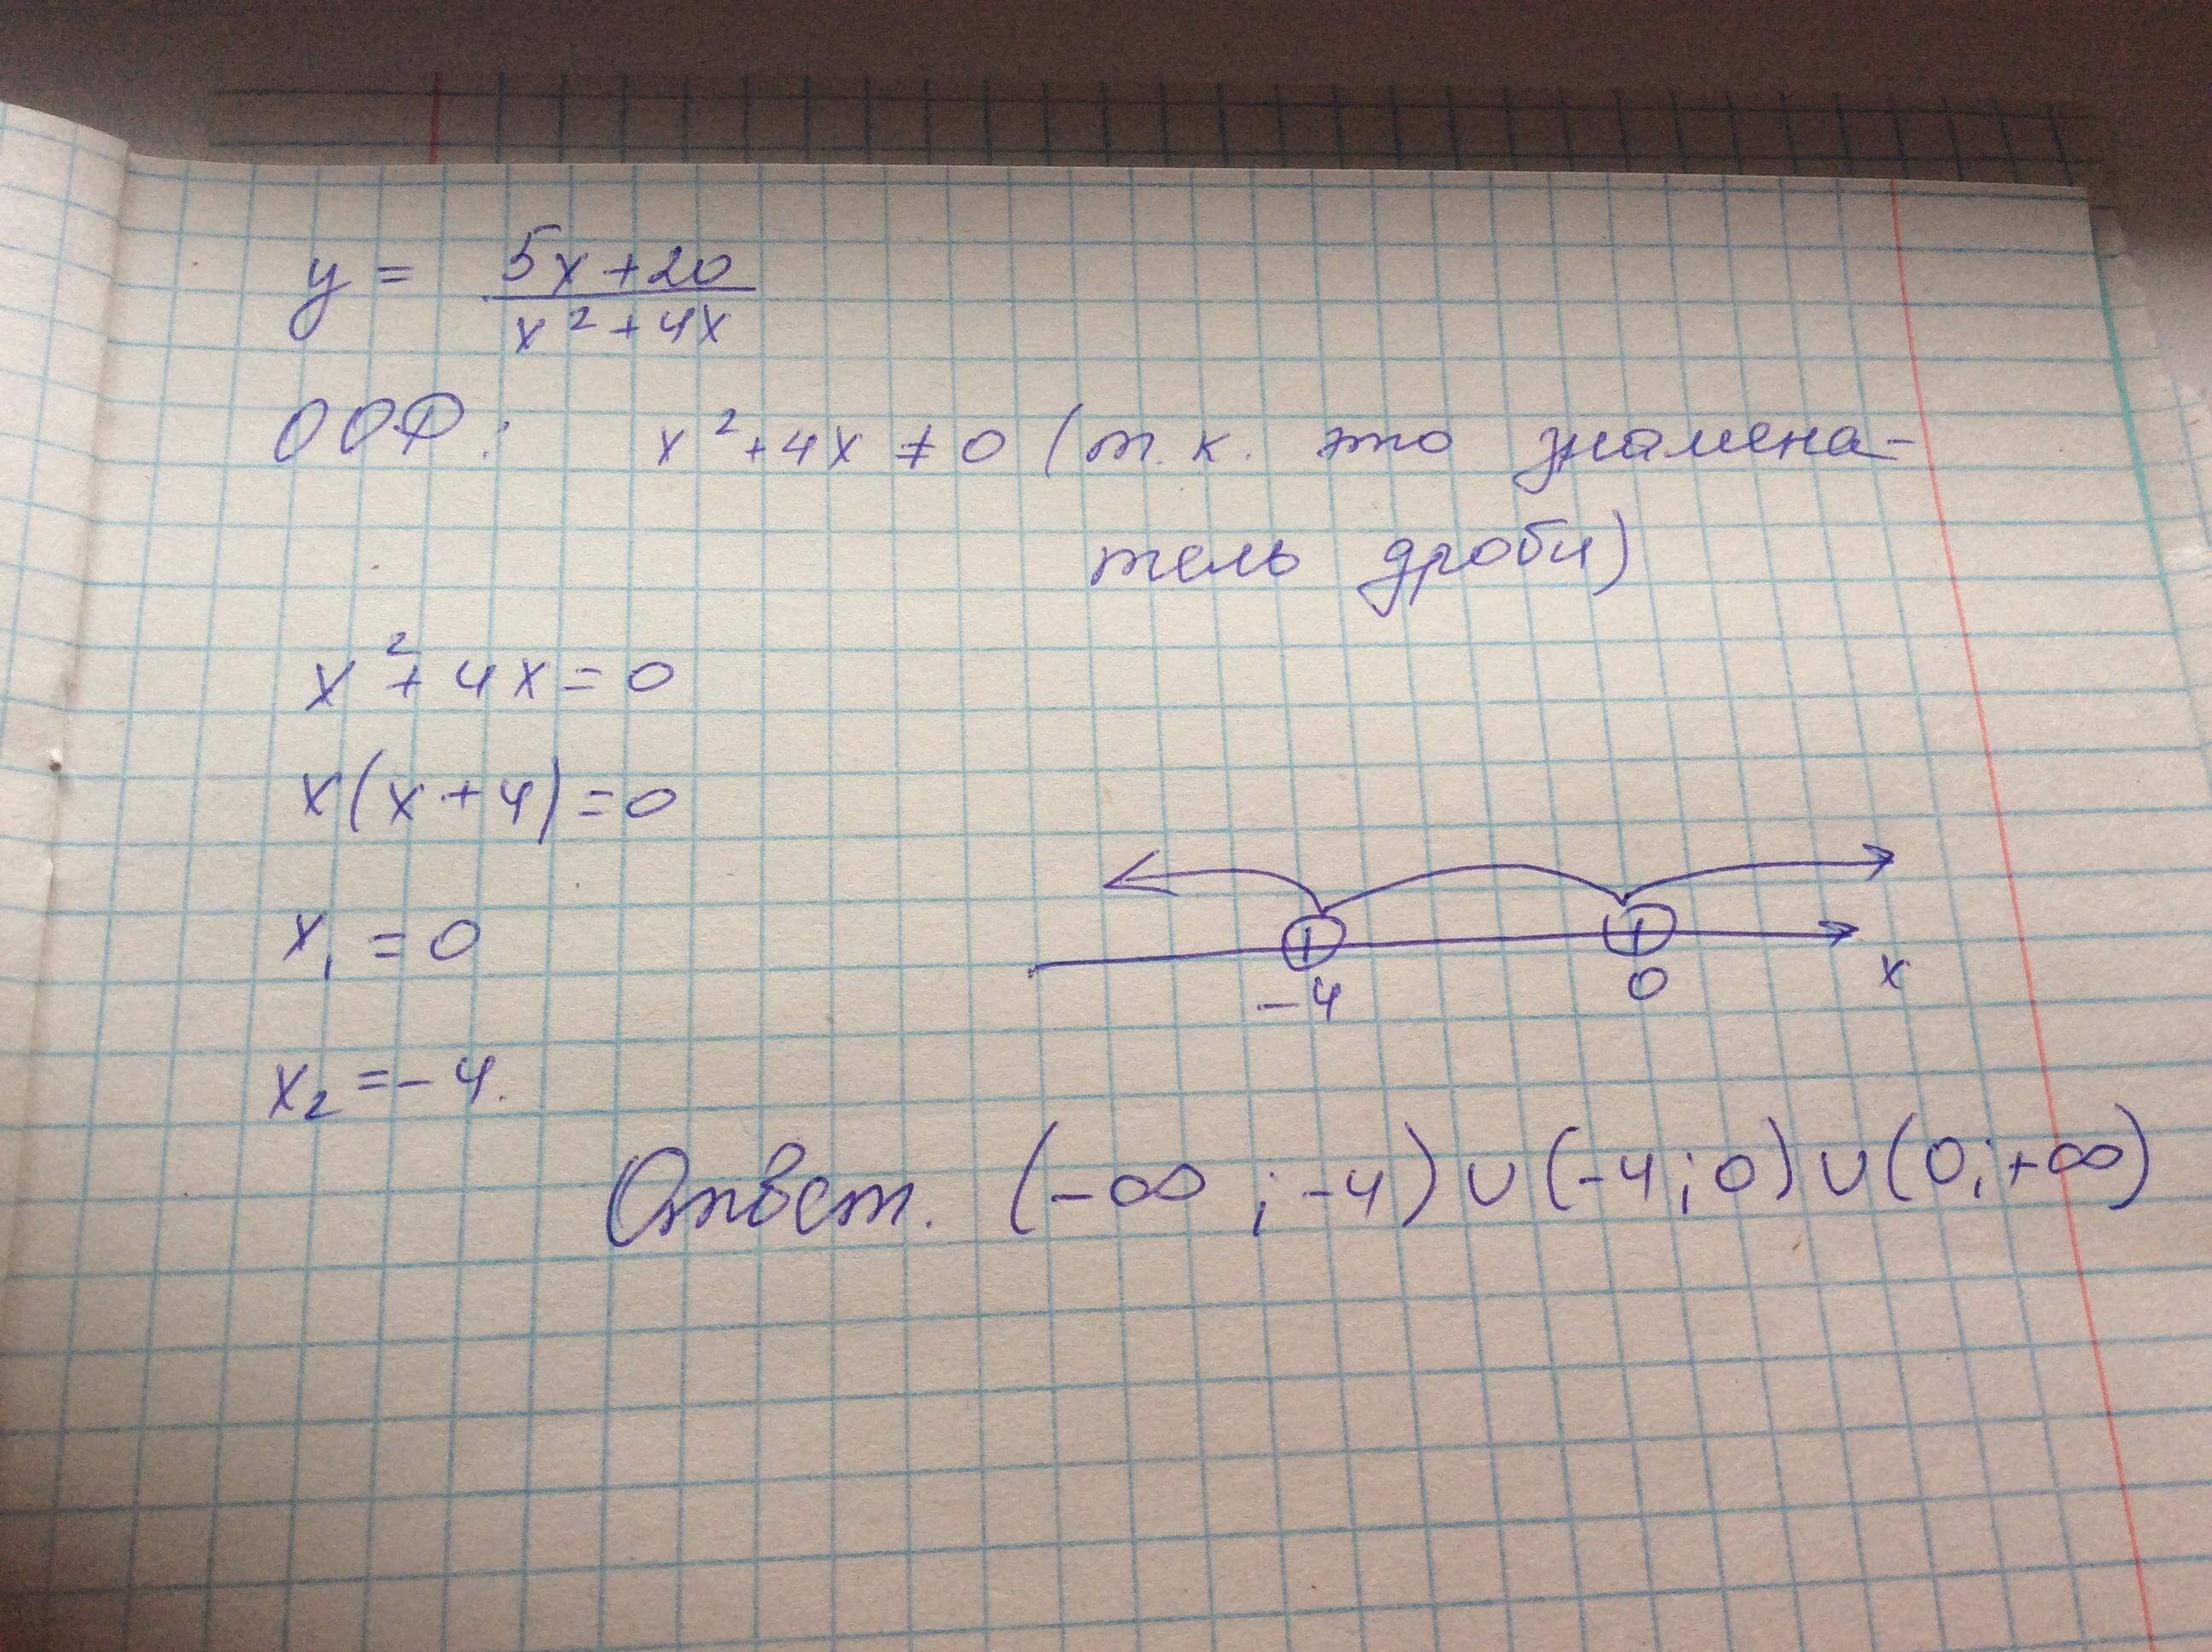 y = (5x+20)/(x²+4x)
ООФ: x²+4x ≠ 0 (т.к. это знамена-
тель дроби)
x²+4x=0
x(x+4)=0
x₁=0
x₂=-4.
-4 0 x
Ответ. (-∞;-4)∪(-4;0)∪(0;+∞)